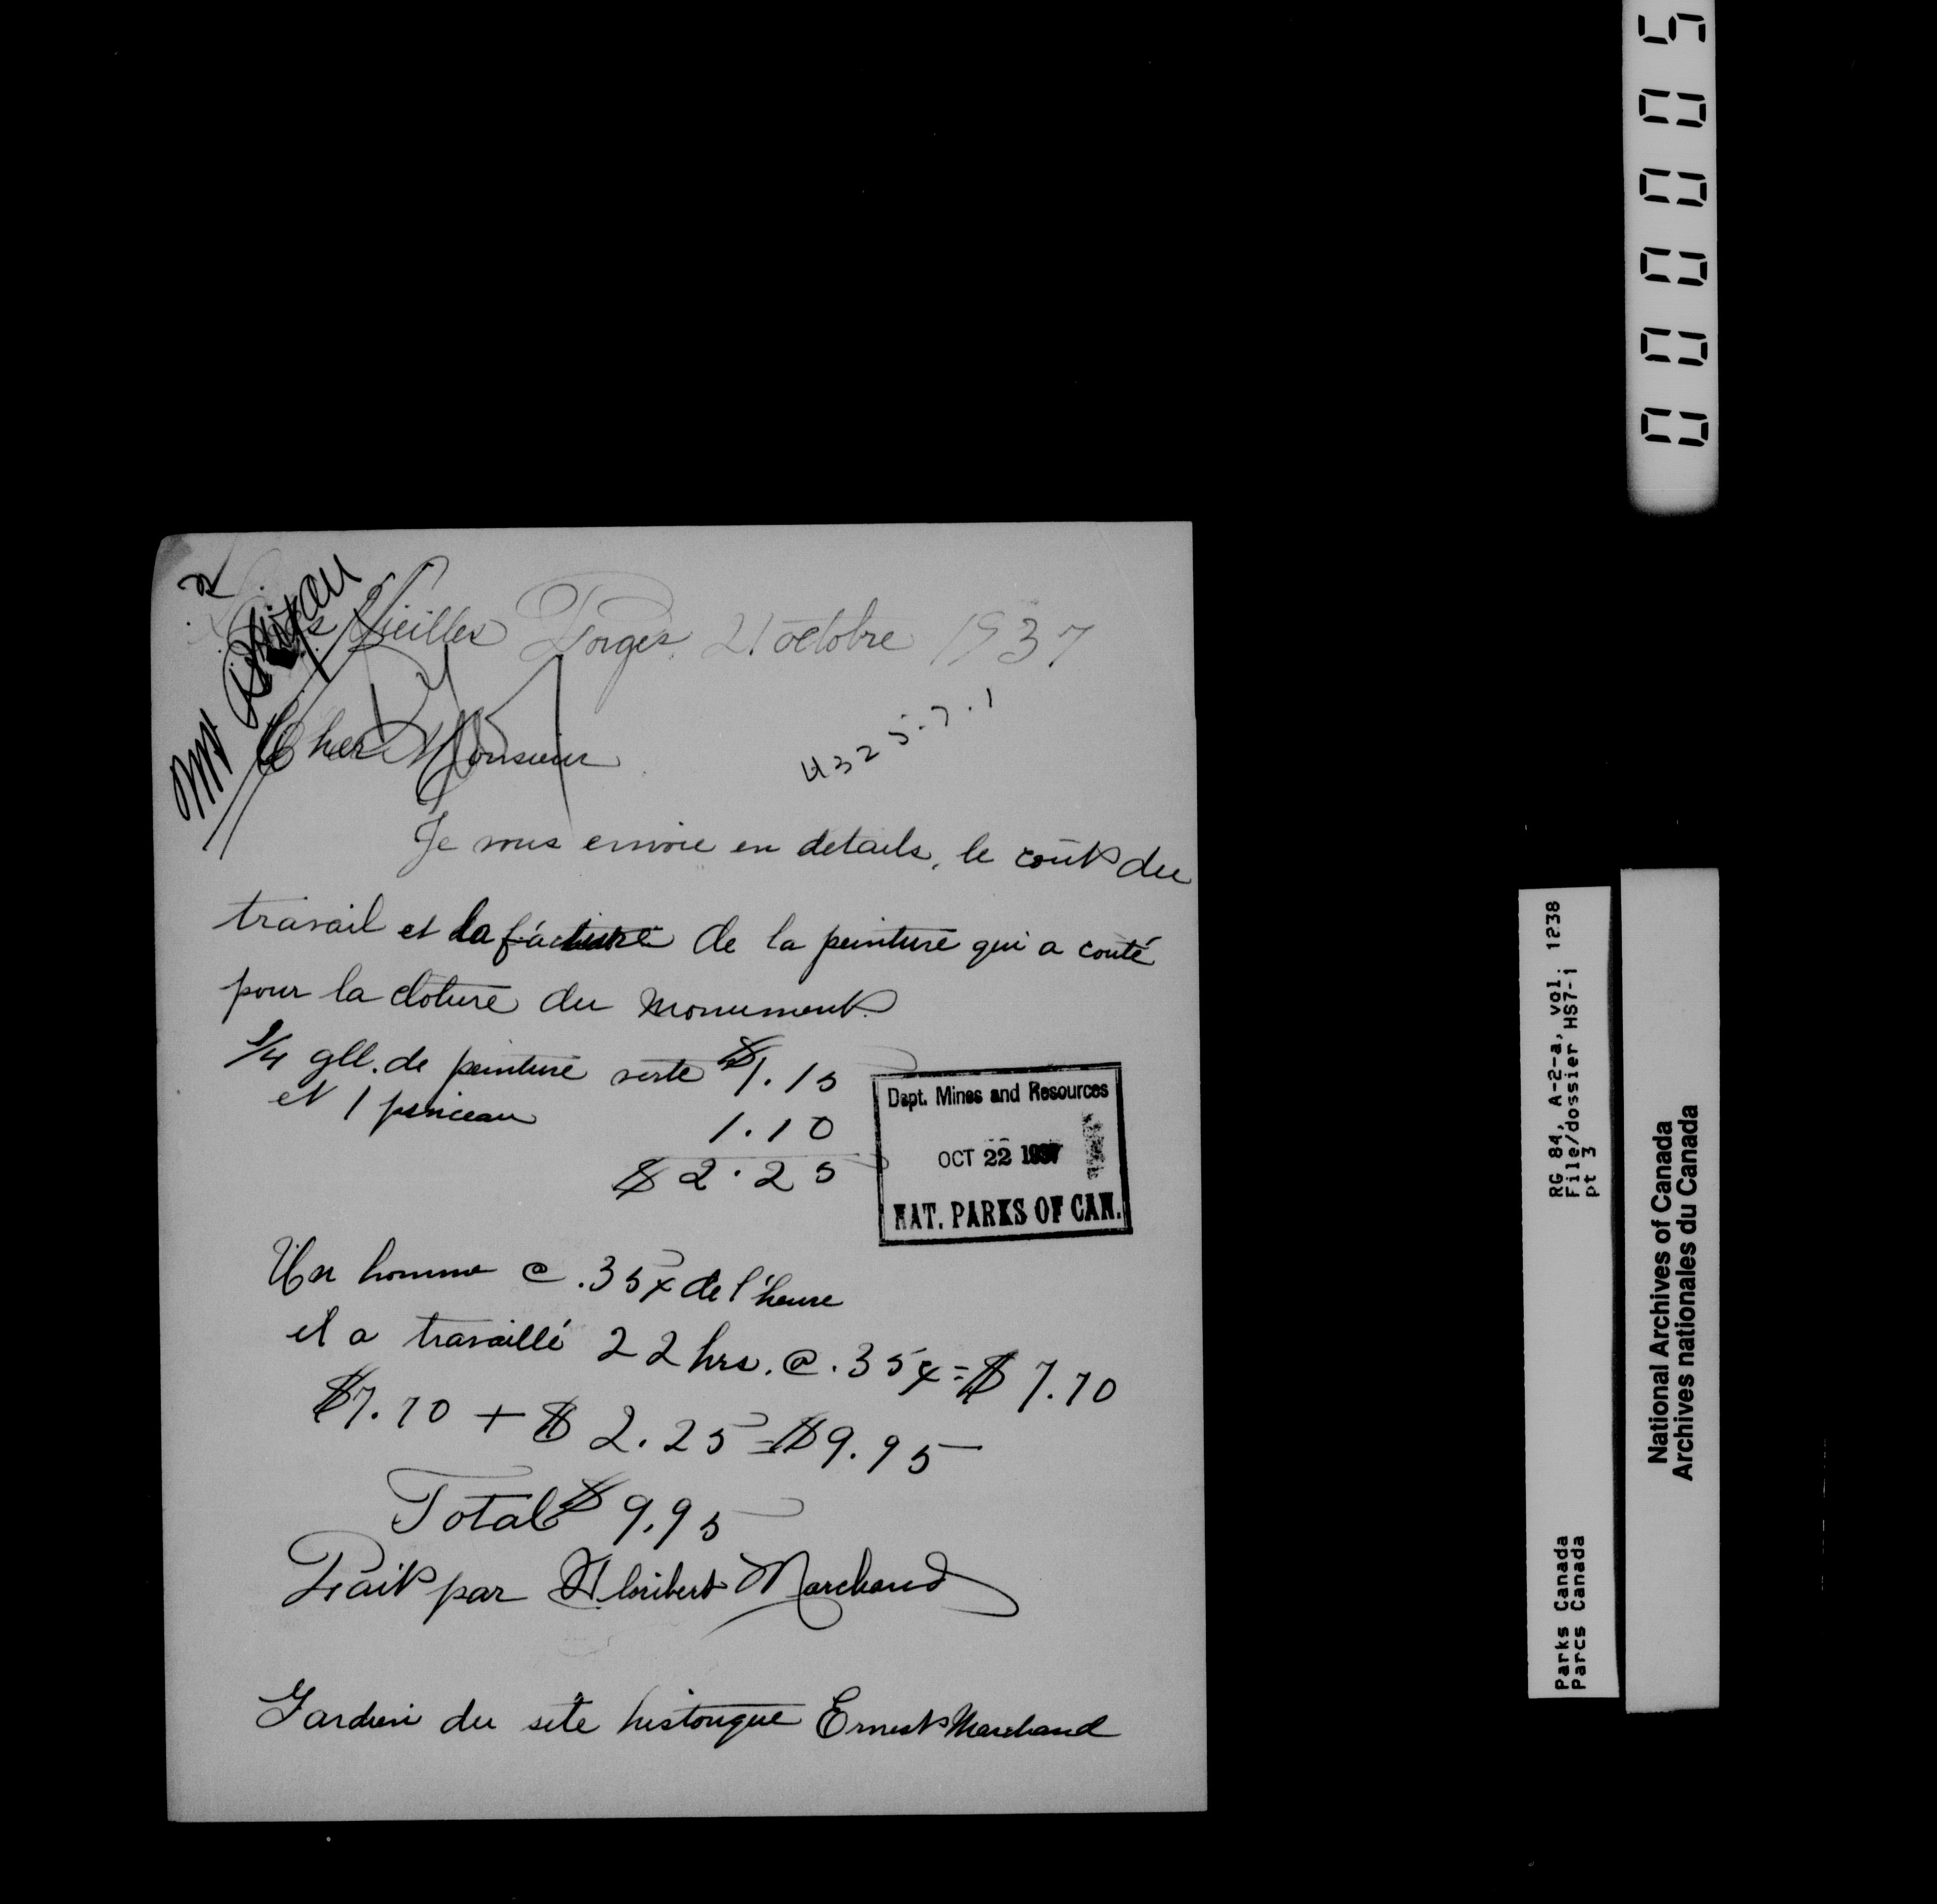 Les Vieilles Forges, 21 octobre 1937
Cher Monsieur
4325-7.1
Je vous envoie en details, le coût du
travail et la facture de la peinture qui a couté
pour la cloture du Monument.
1/4 gll. de peinture verte $1.15
et 1 pinceau 1.10
$2.25
Dept. Mines and Resources
OCT 22 1937
NAT. PARKS OF CAN.
Un homme @ .35¢ de l'heure
il a travaillé 22 hrs. @ .35¢ = $7.70
$7.70 + $2.25 = $9.95
Total $9.95
Fait par Floribert Marchand
Gardien du site historique Ernest Marchand
000005
RG 84, A-2-a, vol. 1238
File/dossier HS7-1
pt 3
Parks Canada
Parcs Canada
National Archives of Canada
Archives nationales du Canada